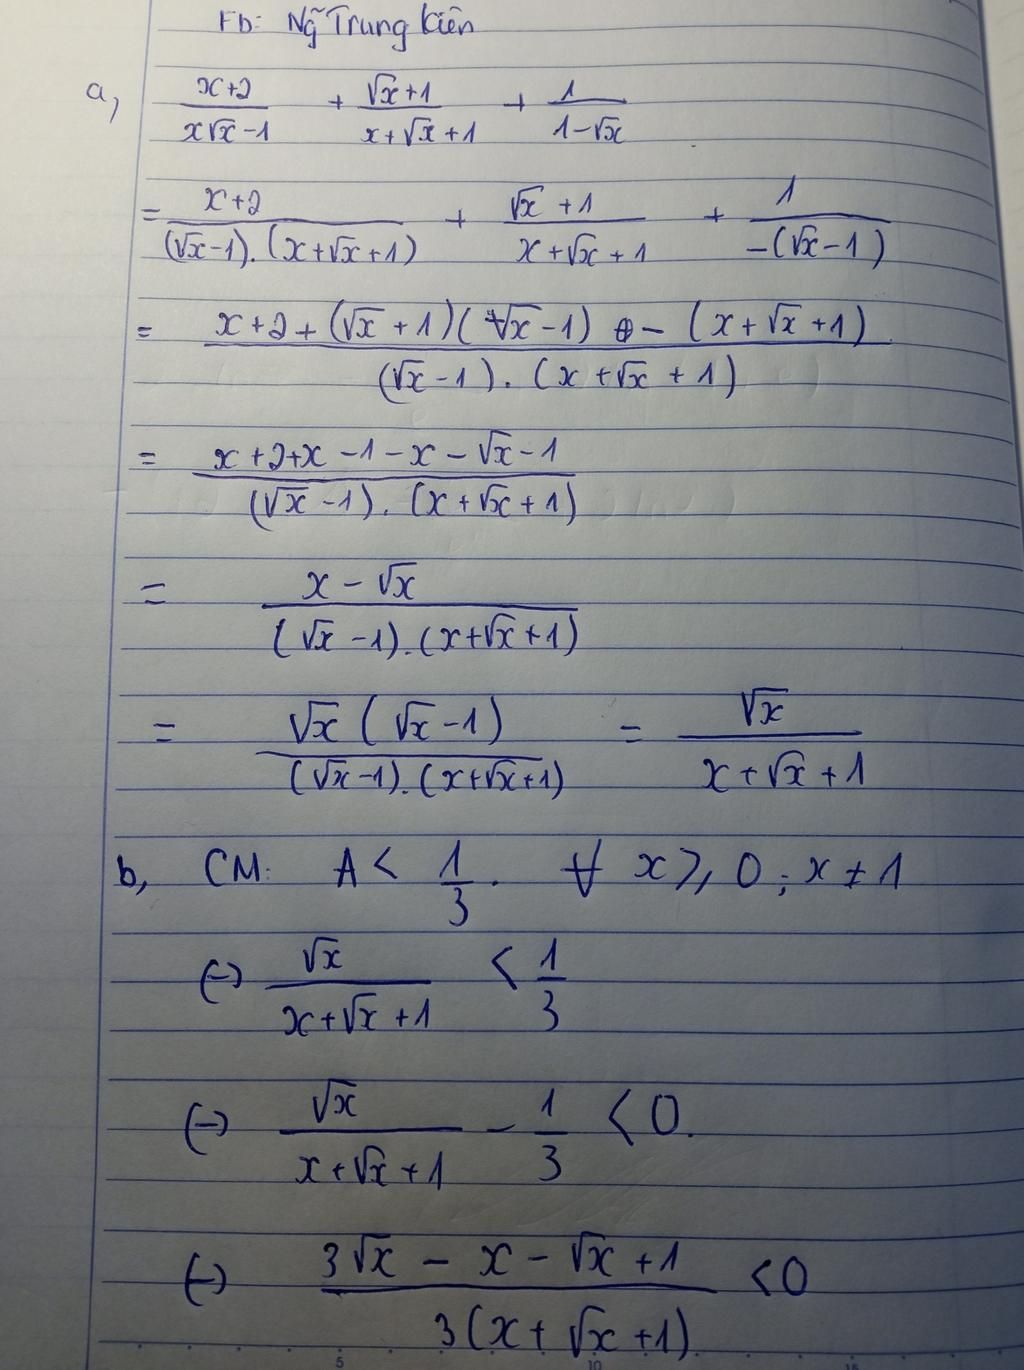 FD: Ng~ Trung Kiên
a, \frac{x+2}{x\sqrt{x}-1} + \frac{\sqrt{x}+1}{x+\sqrt{x}+1} + \frac{1}{1-\sqrt{x}}
= \frac{x+2}{(\sqrt{x}-1).(x+\sqrt{x}+1)} + \frac{\sqrt{x}+1}{x+\sqrt{x}+1} + \frac{1}{-(\sqrt{x}-1)}
= \frac{x+2+(\sqrt{x}+1)(\sqrt{x}-1) - (x+\sqrt{x}+1)}{(\sqrt{x}-1).(x+\sqrt{x}+1)}
= \frac{x+2+x-1-x-\sqrt{x}-1}{(\sqrt{x}-1).(x+\sqrt{x}+1)}
= \frac{x-\sqrt{x}}{(\sqrt{x}-1).(x+\sqrt{x}+1)}
= \frac{\sqrt{x}(\sqrt{x}-1)}{(\sqrt{x}-1).(x+\sqrt{x}+1)} = \frac{\sqrt{x}}{x+\sqrt{x}+1}
b, CM: A < \frac{1}{3}. ∀ x ≥ 0; x ≠ 1
(-) \frac{\sqrt{x}}{x+\sqrt{x}+1} < \frac{1}{3}
(-) \frac{\sqrt{x}}{x+\sqrt{x}+1} - \frac{1}{3} < 0.
(-) \frac{3\sqrt{x}-x-\sqrt{x}+1}{3(x+\sqrt{x}+1)} < 0
5 10 15